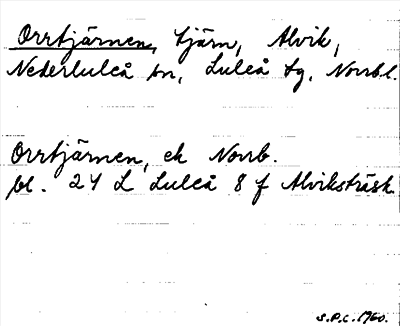 Orrtjärnen, tjärn, Alvik,
Nederluleå sn, Luleå tg, Norrb l.
Orrtjärnen, ek Norrb.
bl. 24 L Luleå 8 f Alviksträsk
S.P.C. 1960.